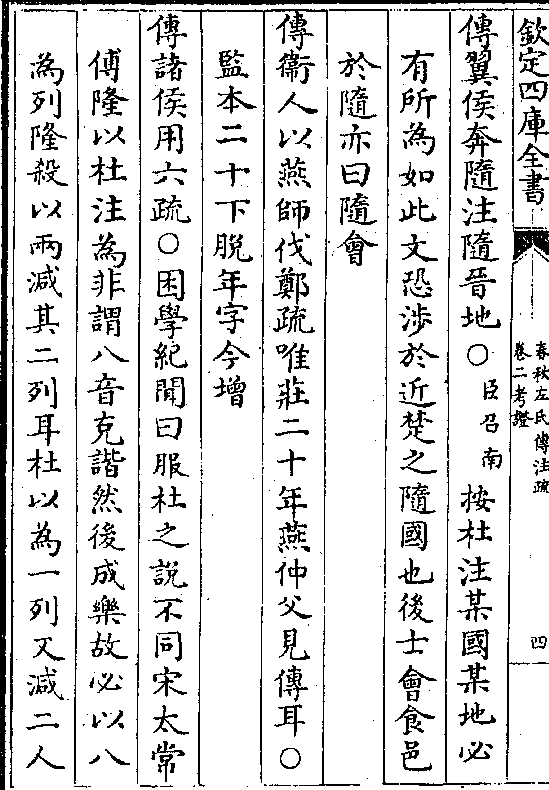 欽定四庫全書
春秋左氏傳注疏
卷二考證
四
傳翼侯奔隨注隨晉地○臣召南按杜注某國某地必
有所為如此文恐涉於近楚之隨國也後士會食邑
於隨亦曰隨會
傳衞人以燕師伐鄭疏唯莊二十年燕仲父見傳耳○
監本二十下脫年字今增
傳諸侯用六疏○困學紀聞曰服杜之說不同宋太常
傅隆以杜注為非謂八音克諧然後成樂故必以八
為列隆殺以兩減其二列耳杜以為一列又減二人